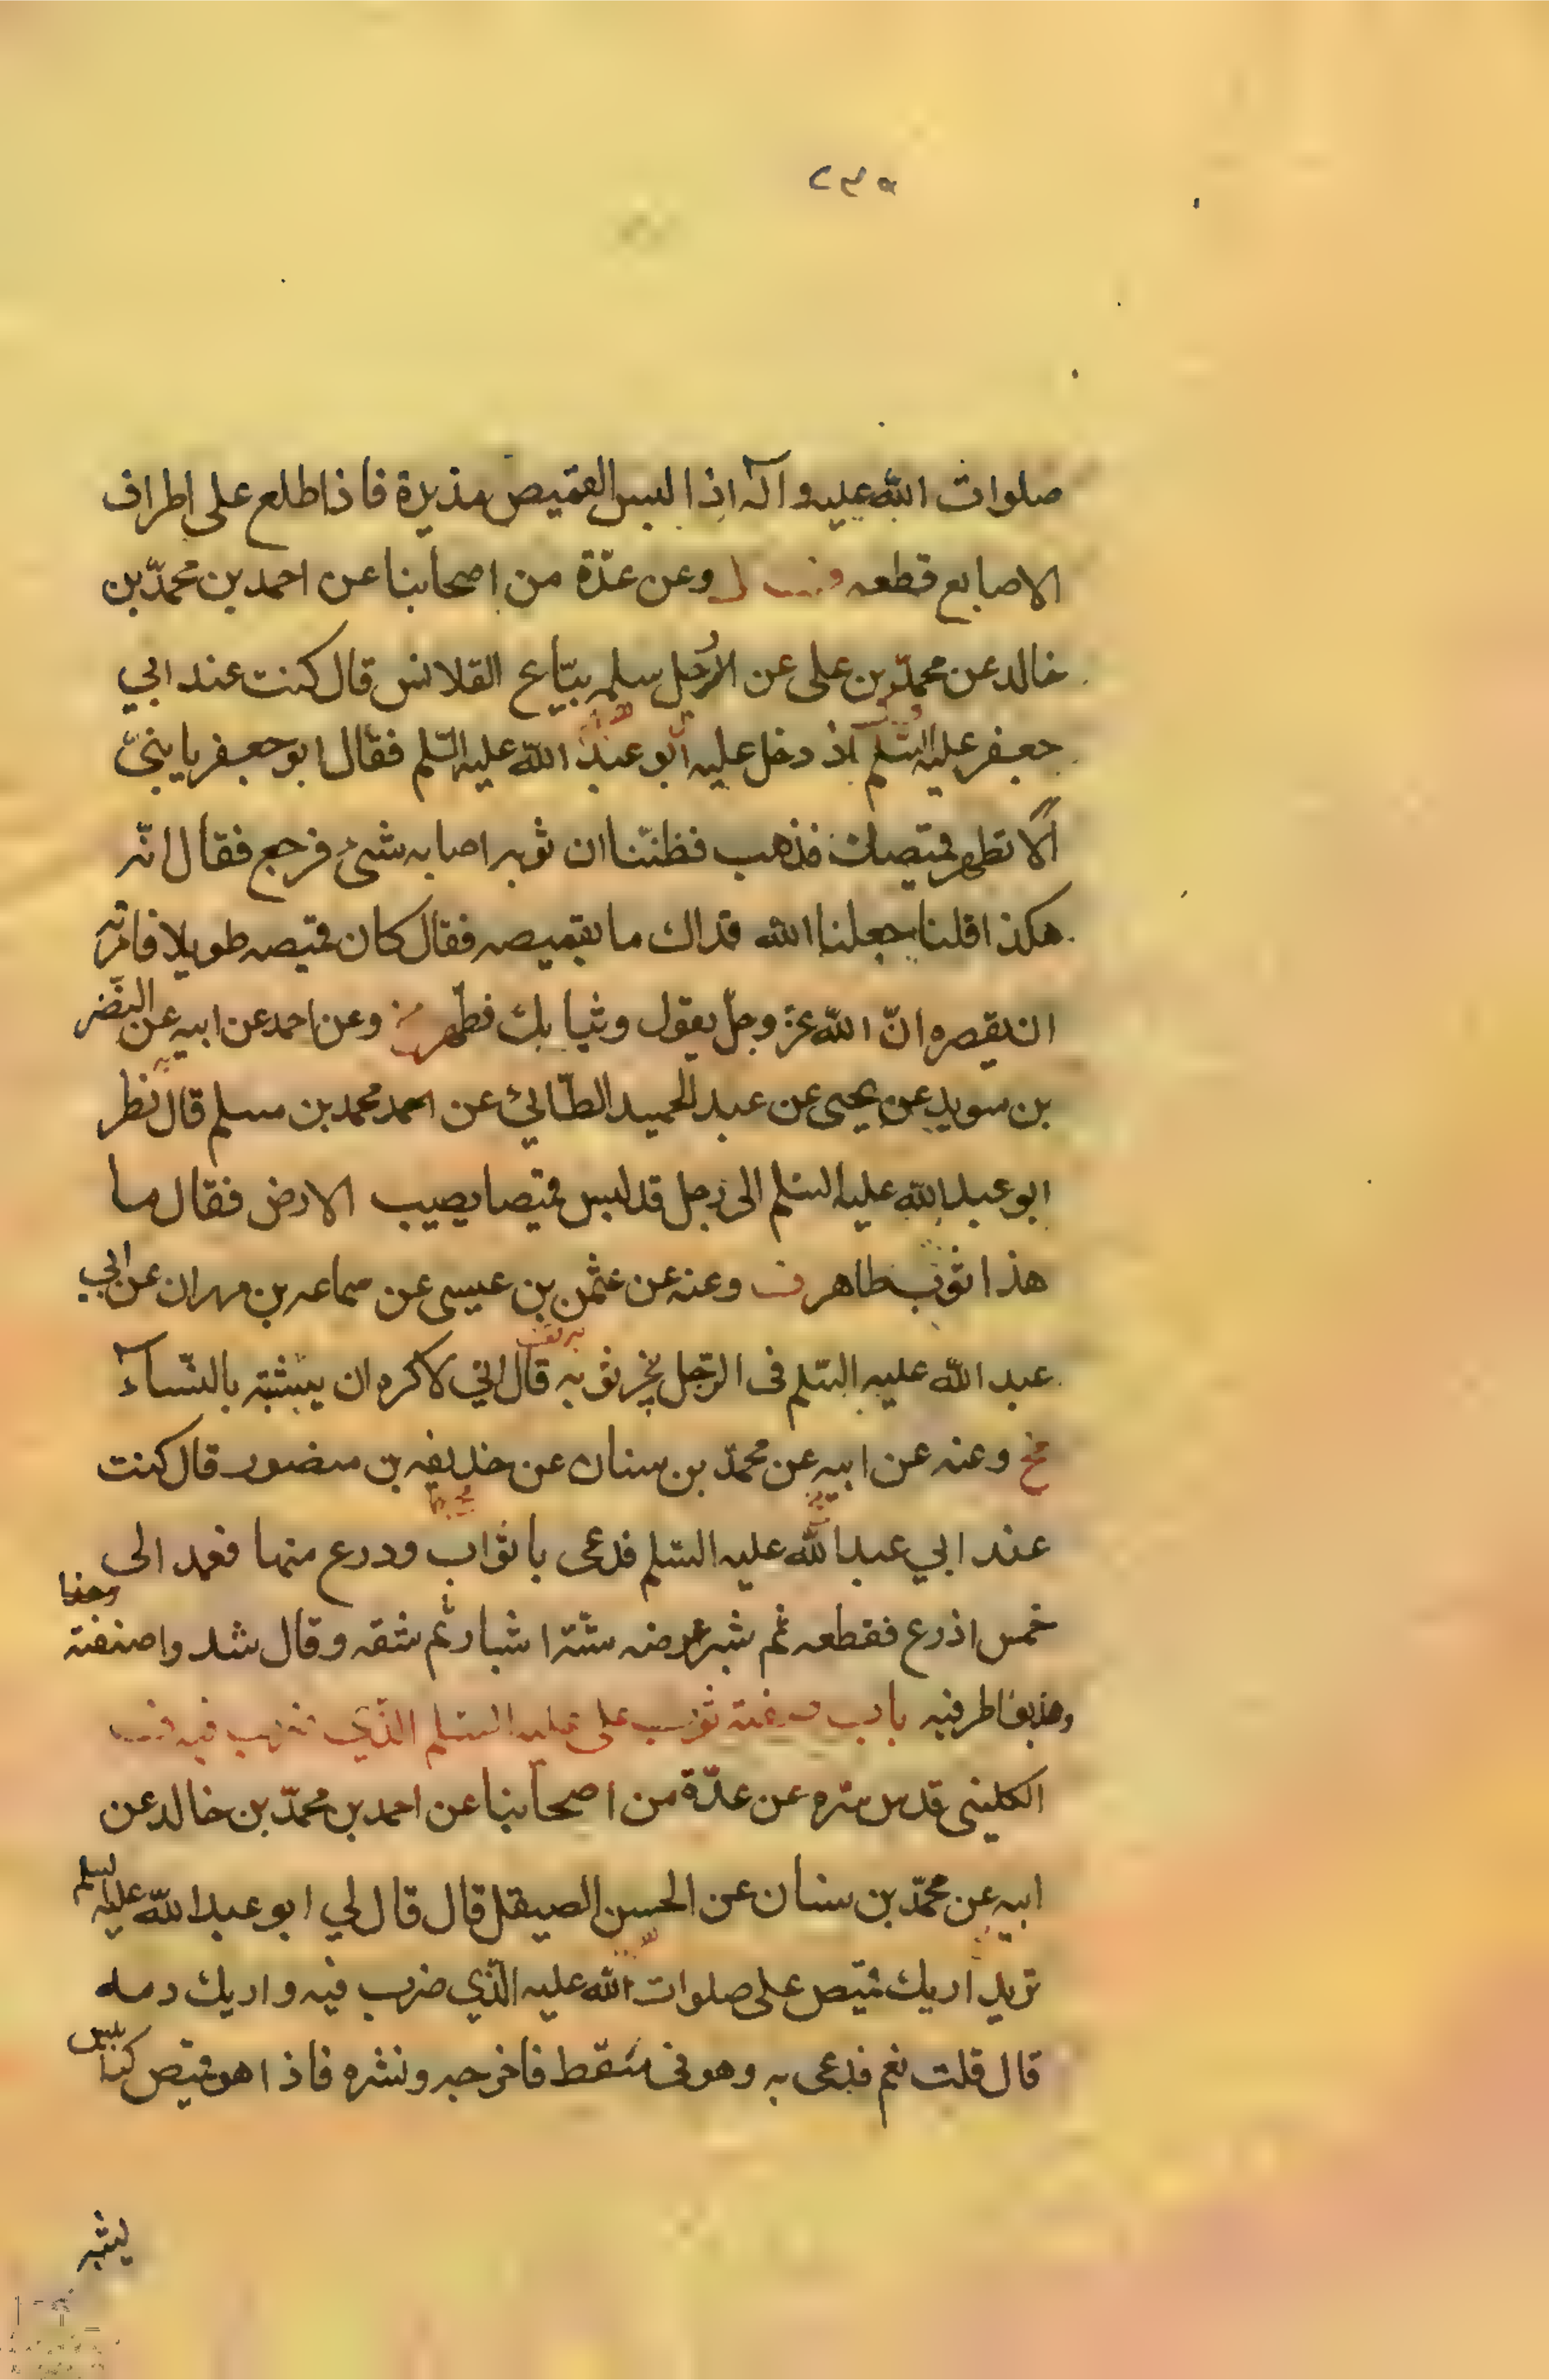 صلوات الله عليه وآله اذا لبس القميص مذيده فاذا طلع على اطراف
الاصابع قطعه وعن عدّة من اصحابنا عن احمد بن محمّد بن
خالد عن محمّد بن علي عن الرجل سلمه بيّاع القلانس قال كنت عند ابي
جعفر عليه السّلم اذ دخل عليه ابو عبد الله عليه السّلم فقال ابو جعفر يا بنيّ
ألا تطهر قميصك فذهب فظننّا ان ثوبه اصابه شئ فرجع فقال انّه
هكذا قلنا جعلنا الله فداك ما بقميصه فقال كان قميصه طويلا فامرته
ان يقصره انّ الله عزّ وجلّ يقول وثيابك فطهر وعن احمد عن ابيه عن النّضر
بن سويد عن يحيى عن عبد الحميد الطّائي عن محمد بن مسلم قال نظر
ابو عبد الله عليه السّلم الى رجل قد لبس قميصا يصيب الارض فقال ما
هذا ثوب طاهر وعنه عن عثمن بن عيسى عن سماعه بن مهران عن ابي
عبد الله عليه السّلم فى الرّجل يجرّ ثوبه قال اني لاكره ان يتشبّه بالنّساء
وعنه عن ابيه عن محمّد بن سنان عن حذيفه بن منصور قال كنت
عند ابي عبد الله عليه السّلم فدعى باثواب وذرع منها فعمد الى
خمس اذرع فقطعه ثم شبر عرضه ستّة اشبار ثم شقه وقال شدوا صنفته
وهذبوا طرفيه باب صفة ثوب على عليه السّلم الذي ضرب فيه
الكليني قدس سره عن عدّة من اصحابنا عن احمد بن محمّد بن خالد عن
ابيه عن محمّد بن سنان عن الحسن الصيقل قال قال لي ابو عبد الله عليه السلم
تريد اريك قميص على صلوات الله عليه الّذي ضرب فيه واريك دمه
قال قلت نعم فدعى به وهو فى سقط فاخرجه ونشره فاذا هو قميص كرابيس
يشبه